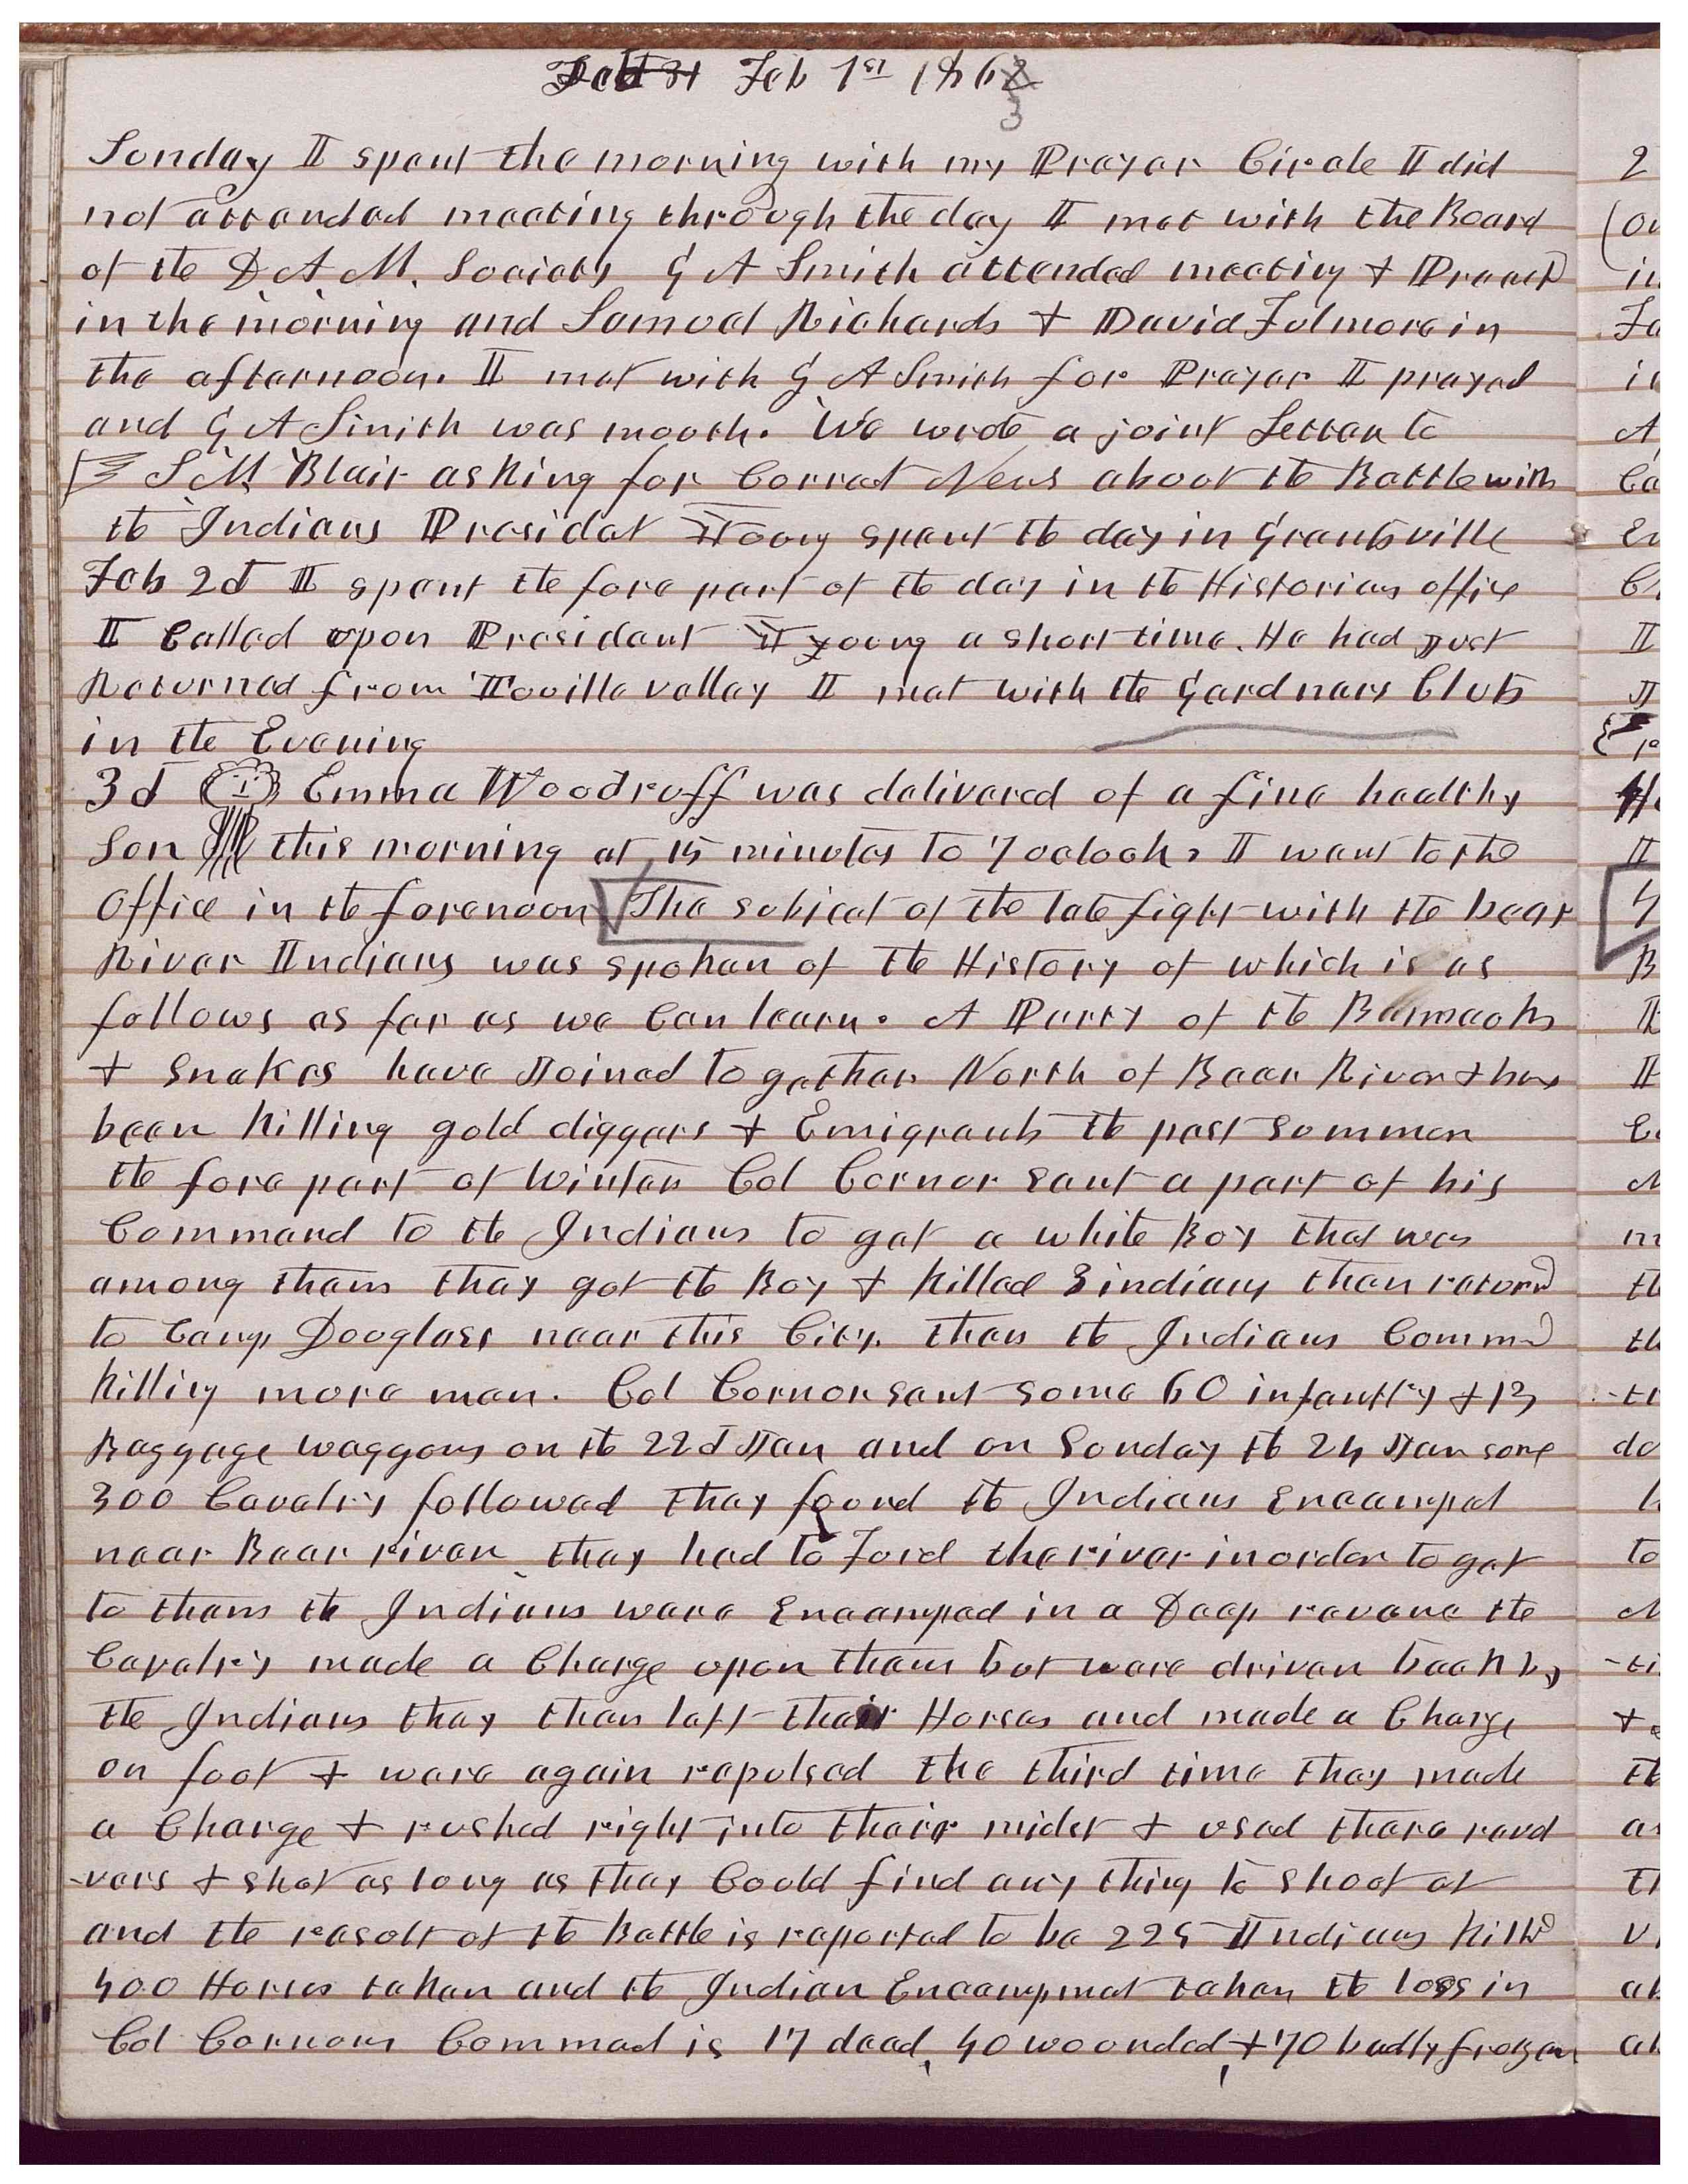 Feb 1st 1863
Sunday I spent the morning with my Prayer Circle I did
not attended meeting through the day I met with the Board
of the D A. M. Society G A Smith attended meeting & Preach
in the morning and Samuel Richards & David Fulmore in
the afternoon. I met with G A Smith for Prayer I prayed
and G A Smith was mouth. We wrote a joint Letter to
S M Blair asking for Corret News about the Battle with
the Indians Presidet Young spent the day in Grantsville
Feb 2d I spent the fore part of the day in the Historians office
I Called upon President Young a short time. He had Just
Returned from Tooille valley I met with the Gardners Club
in the Evening
3d Emma Woodruff was delivered of a fine healthy
Son this morning at 15 minutes to 7 oclock. I went to the
Office in the forenoon The subject of the late fight with the bear
River Indians was spoken of the History of which is as
follows as far as we Can learn. A Party of the Bannacks
& Snakes have Joined together North of Bear River & has
been killing gold diggers & Emigrants the past Summer
the fore part of Winter Col Cornor sent a part of his
Command to the Indians to get a white Boy that was
among them they got the Boy & killed 3 indians then returnd
to Camp Douglass near this City. then the Indians Commd
killing more men. Col Cornor sent some 60 infantry & 13
Baggage waggons on the 22d Jan and on Sunday the 24 Jan some
300 Cavalry followed They found the Indians Encamped
near Bear river they had to Ford the river in order to get
to them the Indians ware Encamped in a Deep ravene the
Cavalry made a Charge upon them but ware driven back by
the Indians they then left their Horses and made a Charge
on foot & ware again repulsed the third time they made
a Charge & rushed right into their midst & used there revol
-vers & shot as long as they Could find any thing to shoot at
and the result of the Battle is reported to be 225 Indians killd
400 Horses taken and the Indian Encampmet taken the loss in
Col Cornors Commad is 17 dead, 40 wounded, & 70 badly frozen